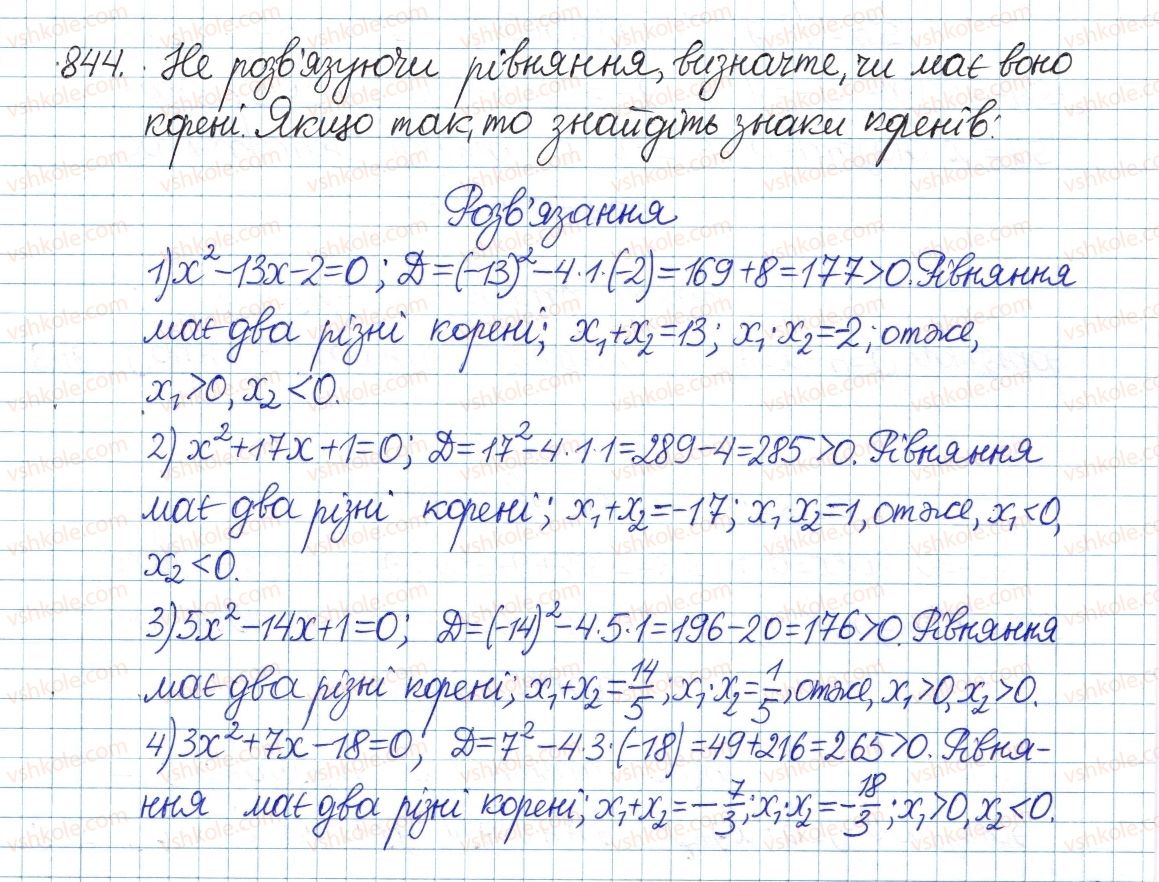 844. Не розв'язуючи рівняння, визначте, чи має воно
корені. Якщо так, то знайдіть знаки коренів:
Розв'язання
1) x²-13x-2=0; D=(-13)²-4·1·(-2)=169+8=177>0. Рівняння
має два різні корені; x₁+x₂=13; x₁·x₂=-2; отже,
x₁>0, x₂<0.
2) x²+17x+1=0; D=17²-4·1·1=289-4=285>0. Рівняння
має два різні корені; x₁+x₂=-17; x₁·x₂=1, отже, x₁<0,
x₂<0.
3) 5x²-14x+1=0; D=(-14)²-4·5·1=196-20=176>0. Рівняння
має два різні корені; x₁+x₂=14/5; x₁·x₂=1/5, отже, x₁>0, x₂>0.
4) 3x²+7x-18=0; D=7²-4·3·(-18)=49+216=265>0. Рівня-
ння має два різні корені; x₁+x₂=-7/3; x₁·x₂=-18/3; x₁>0, x₂<0.
vshkole.com